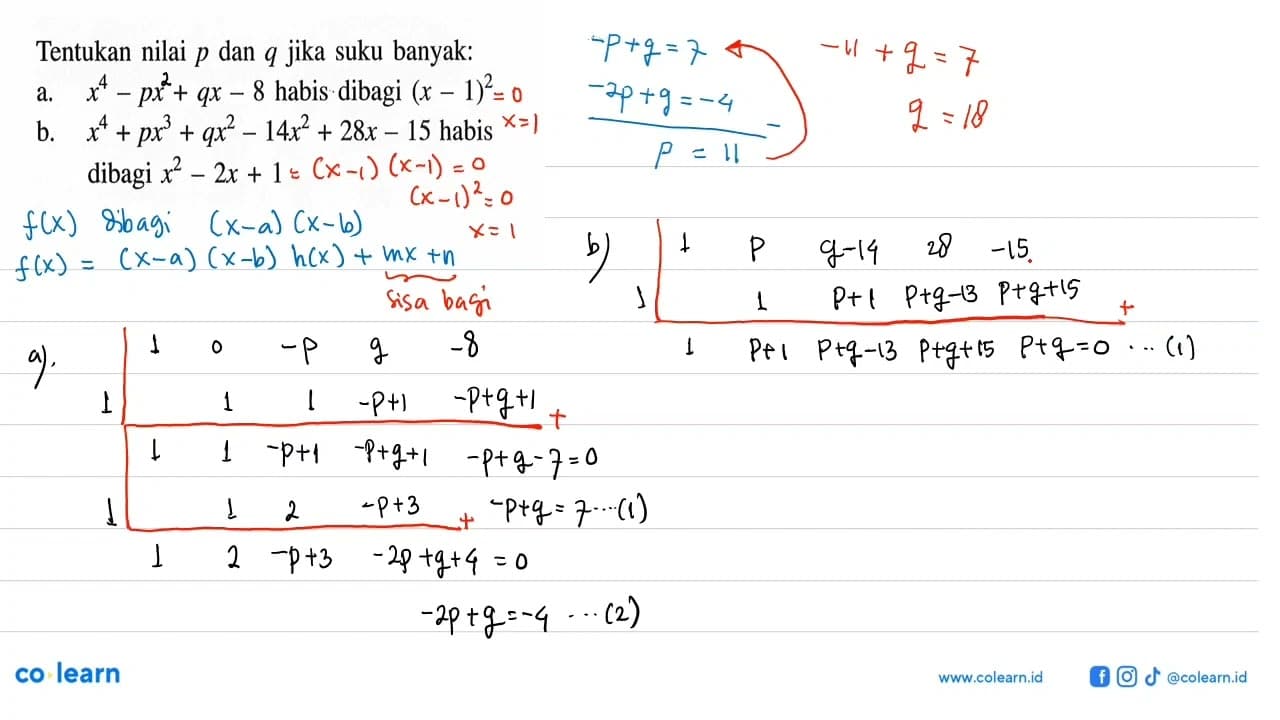 Tentukan nilai p dan q jika suku banyak:
a. x⁴ − px² + qx − 8 habis dibagi (x − 1)² = 0
x = 1
b. x⁴ + px³ + qx² − 14x² + 28x − 15 habis
dibagi x² − 2x + 1 = (x−1) (x−1) = 0
(x−1)² = 0
x = 1
f(x) dibagi (x−a) (x−b)
f(x) = (x−a) (x−b) h(x) + mx + n
sisa bagi
-p+q = 7
-2p+q = -4
−
p = 11
-11 + q = 7
q = 18
a).
1 0 -p q -8
1 1 1 -p+1 -p+q+1 +
1 1 -p+1 -p+q+1 -p+q-7=0
1 1 2 -p+3 + -p+q = 7 ... (1)
1 2 -p+3 -2p+q+4 = 0
-2p+q = -4 ... (2)
b)
1 p q-14 28 -15
1 1 p+1 p+q-13 p+q+15 +
1 p+1 p+q-13 p+q+15 p+q=0 ... (1)
co learn
www.colearn.id
@colearn.id